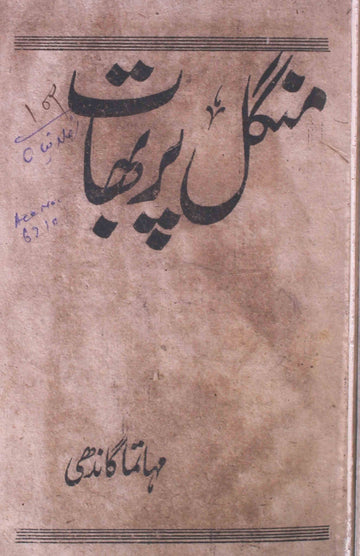 منگل پربھات
۱۵۲
Acc No.
6210
مہاتما گاندھی